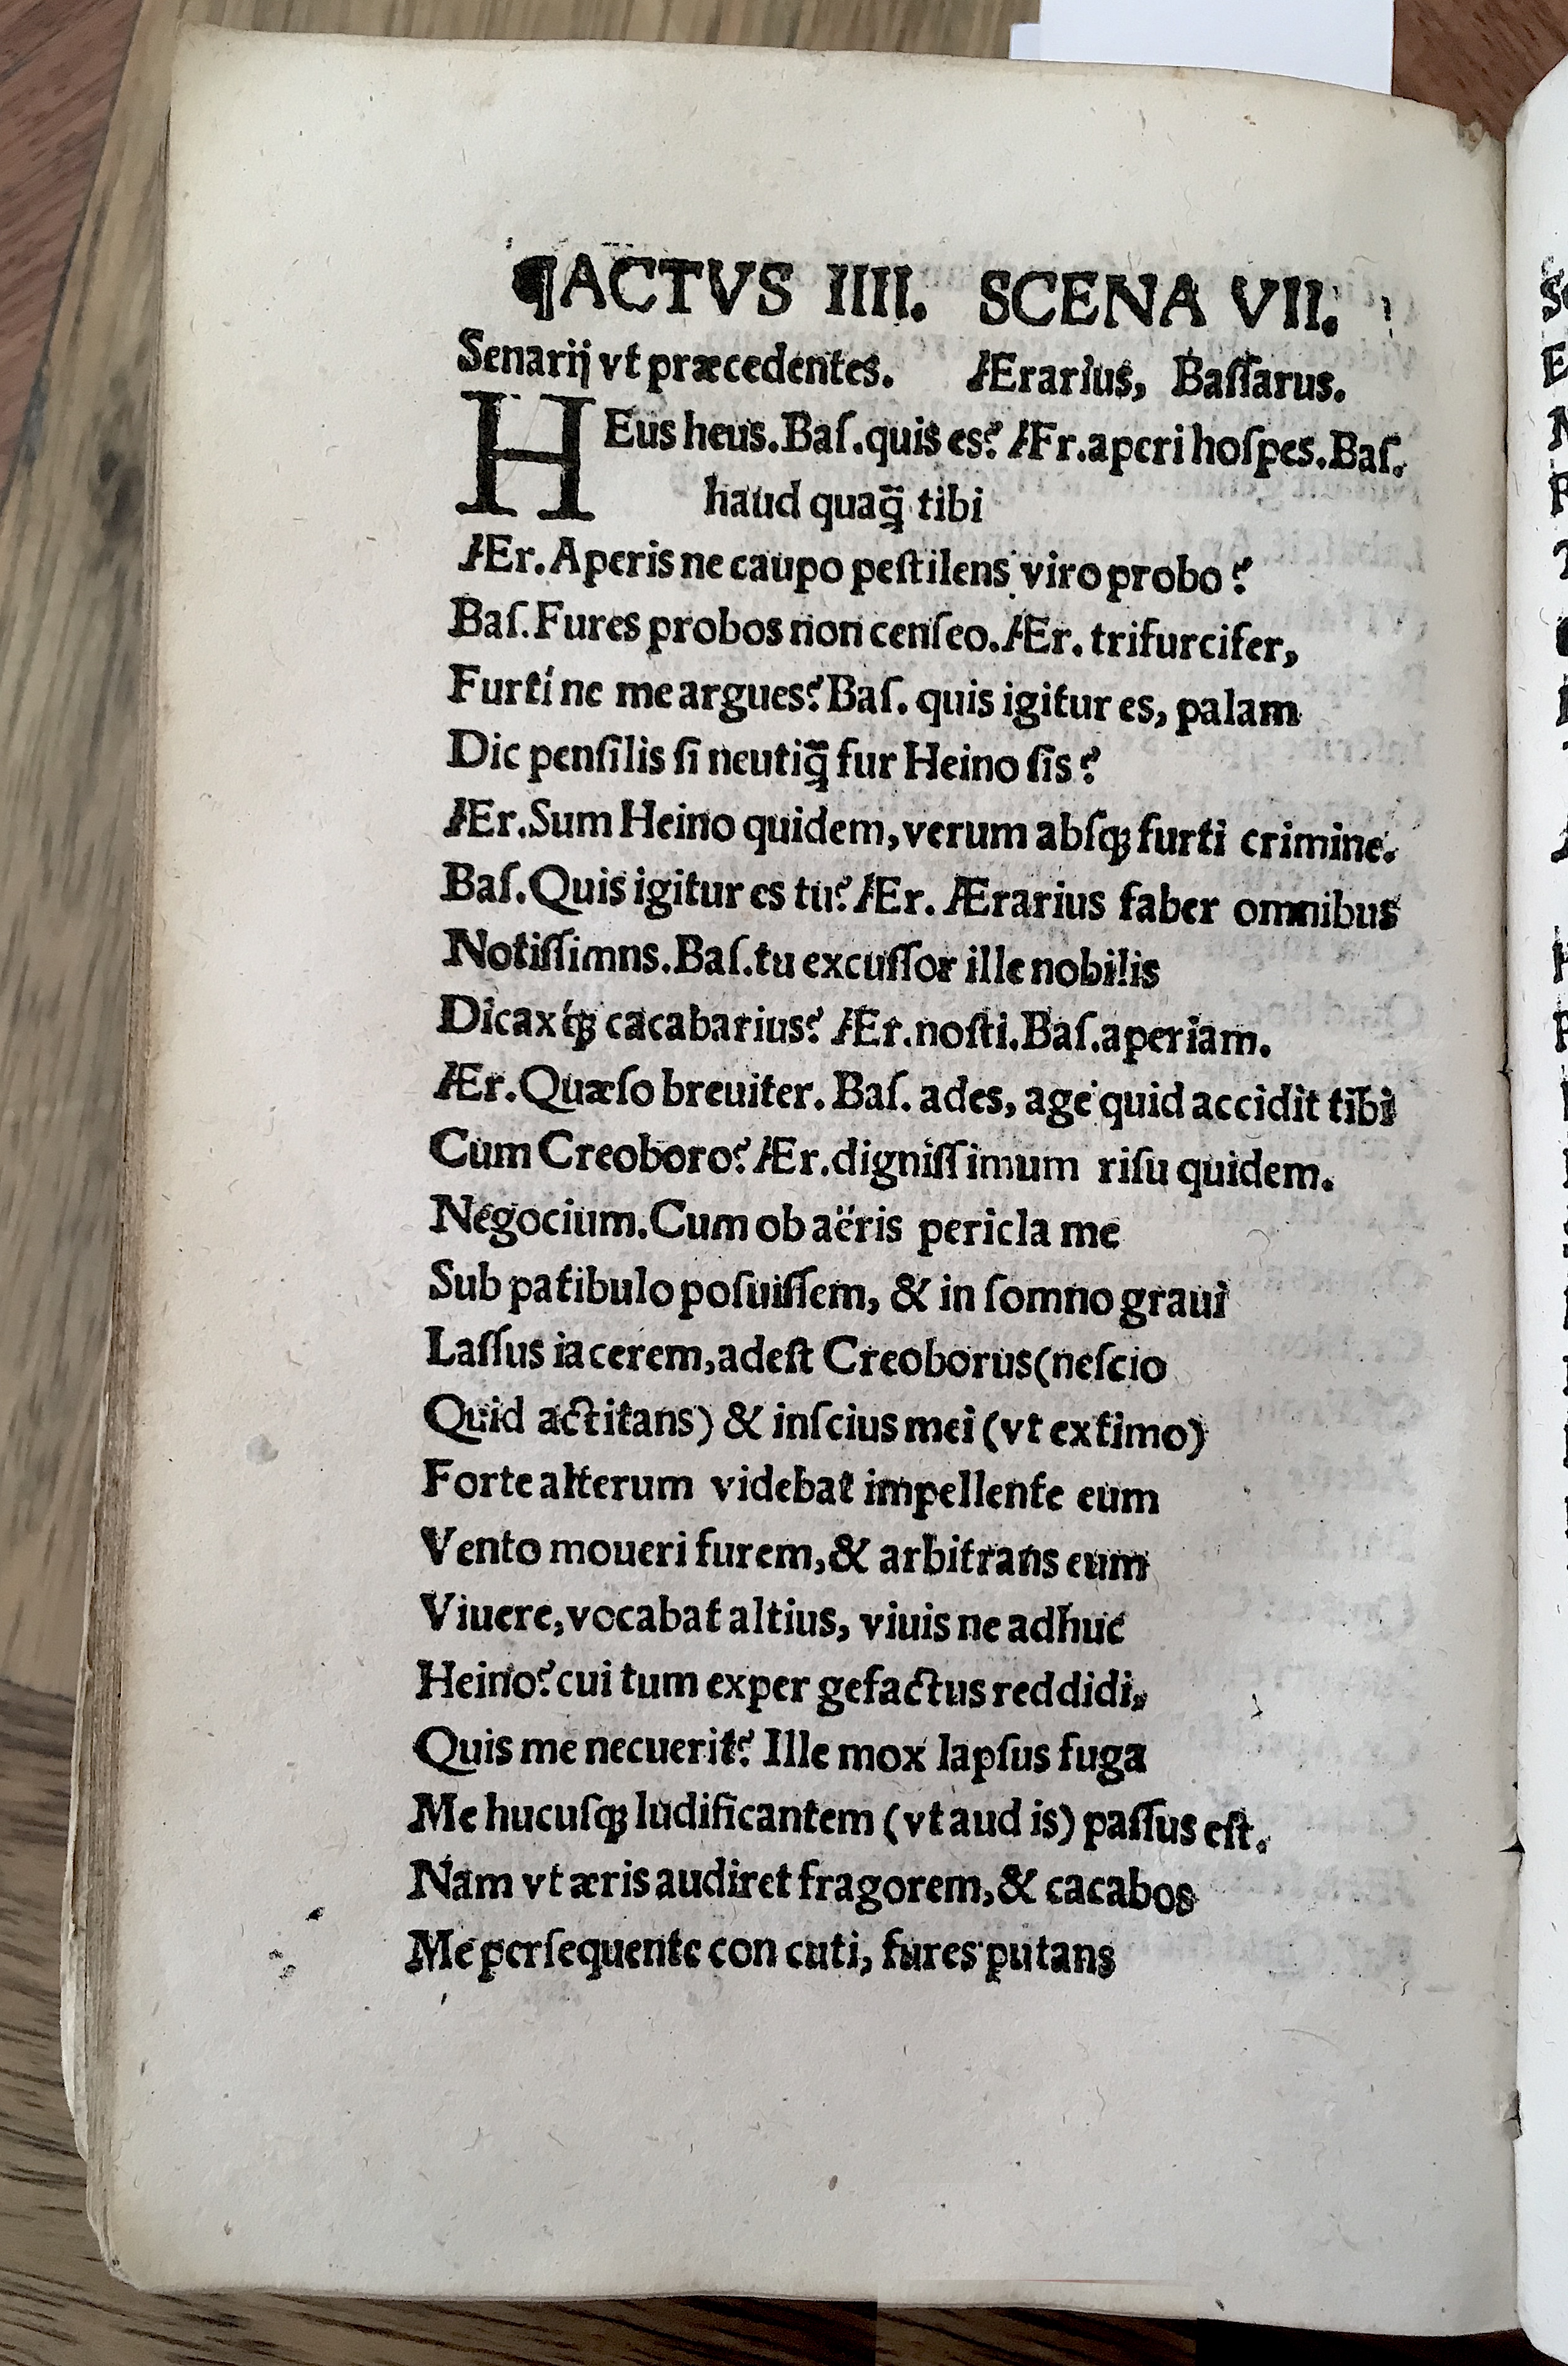 ¶ACTVS IIII. SCENA VII.
Senarij vt præcedentes. Ærarius, Baſſarus.
HEus heus. Baſ. quis es? Ær. aperi hoſpes. Baſ.
haud quaq̃ tibi
Ær. Aperis ne caupo peſtilens viro probo?
Baſ. Fures probos non cenſeo. Ær. trifurcifer,
Furtí ne me argues? Baſ. quis igitur es, palam
Dic penſilis ſi neutiq̃ fur Heino ſis?
Ær. Sum Heino quidem, verum abſqꝫ furti crimine.
Baſ. Quis igitur es tu? Ær. Ærarius faber omnibus
Notiſſimns. Baſ. tu excuſſor ille nobilis
Dicax q́ꝫ cacabarius? Ær. noſti. Baſ. aperiam.
Ær. Quæſo breuiter. Baſ. ades, age quid accidit tibi
Cum Creoboro? Ær. digniſſimum riſu quidem.
Negocium. Cum ob aëris pericla me
Sub patibulo poſuiſſem, & in ſomno graui
Laſſus iacerem, adeſt Creoborus (neſcio
Quid actitans) & inſcius mei (vt extimo)
Forte alterum videbat impellente eum
Vento moueri furem, & arbitrans eum
Viuere, vocabat altius, viuis ne adhuc
Heino? cui tum exper gefactus reddidi,
Quis me necuerit? Ille mox lapſus fuga
Me hucuſqꝫ ludificantem (vt aud is) paſſus eſt.
Nam vt æris audiret fragorem, & cacabos
Me perſequente con cuti, fures putans